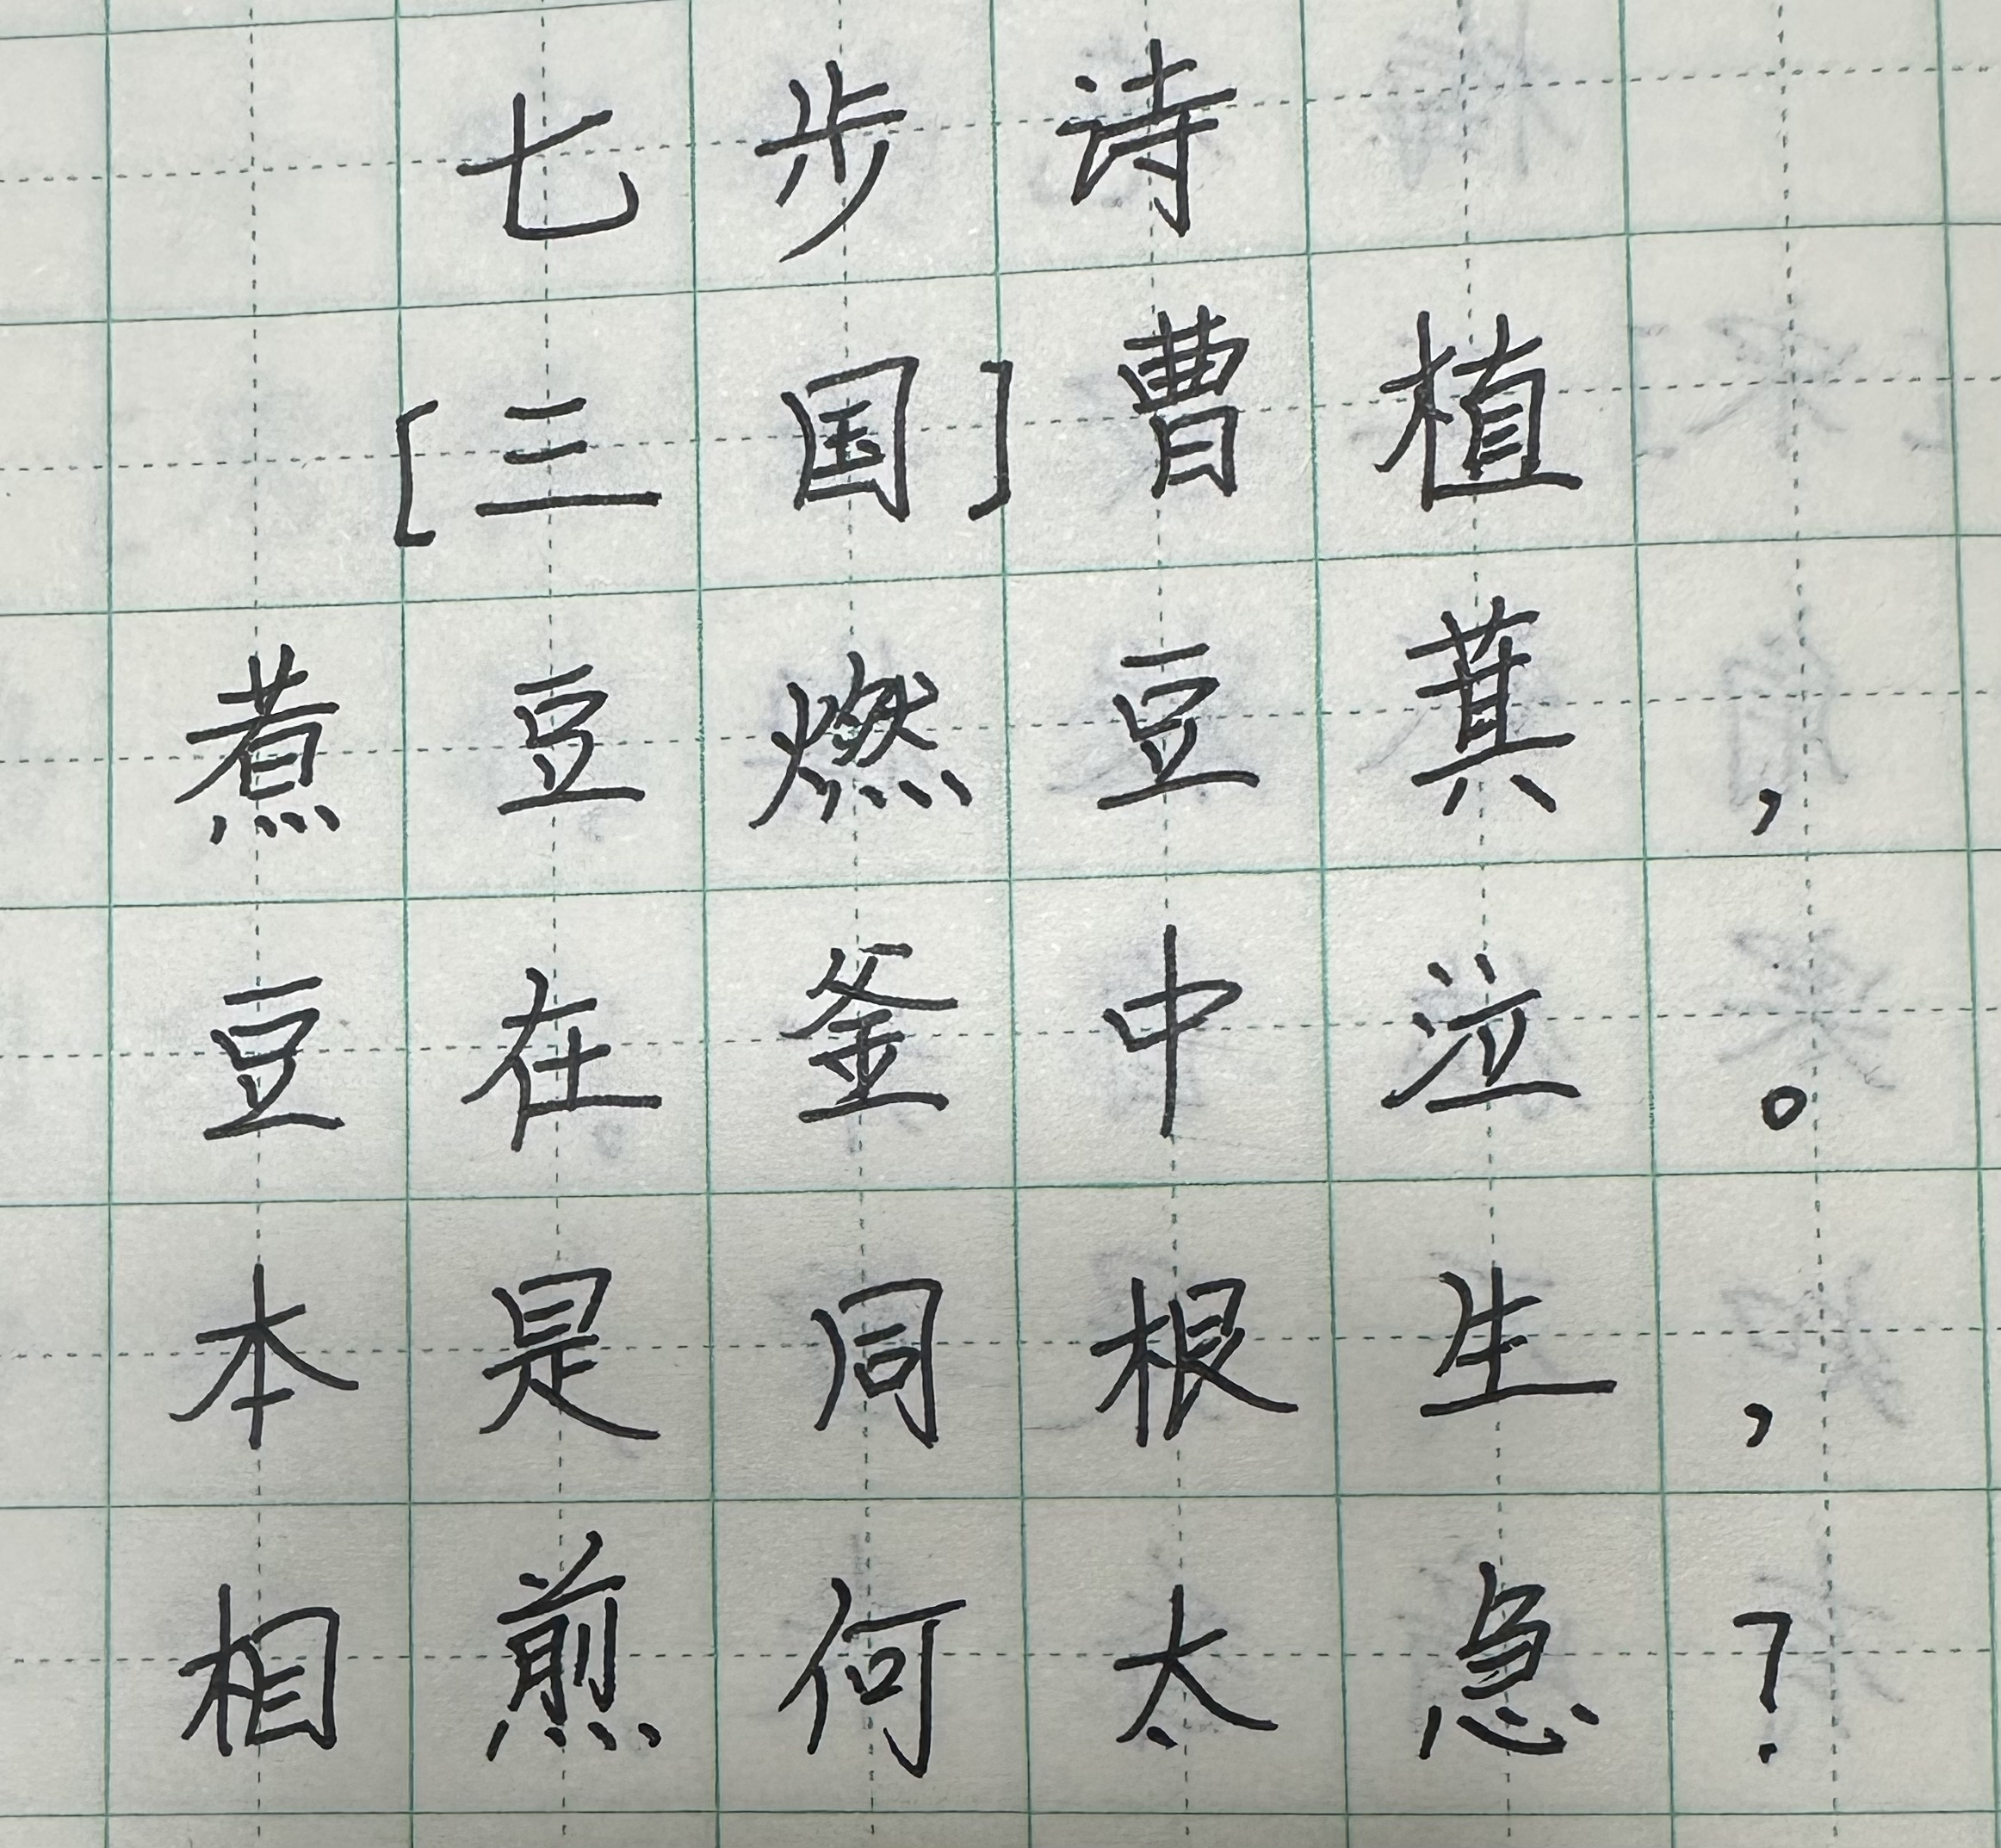 七步诗
[三国]曹植
煮豆燃豆萁,
豆在釜中泣。
本是同根生,
相煎何太急?